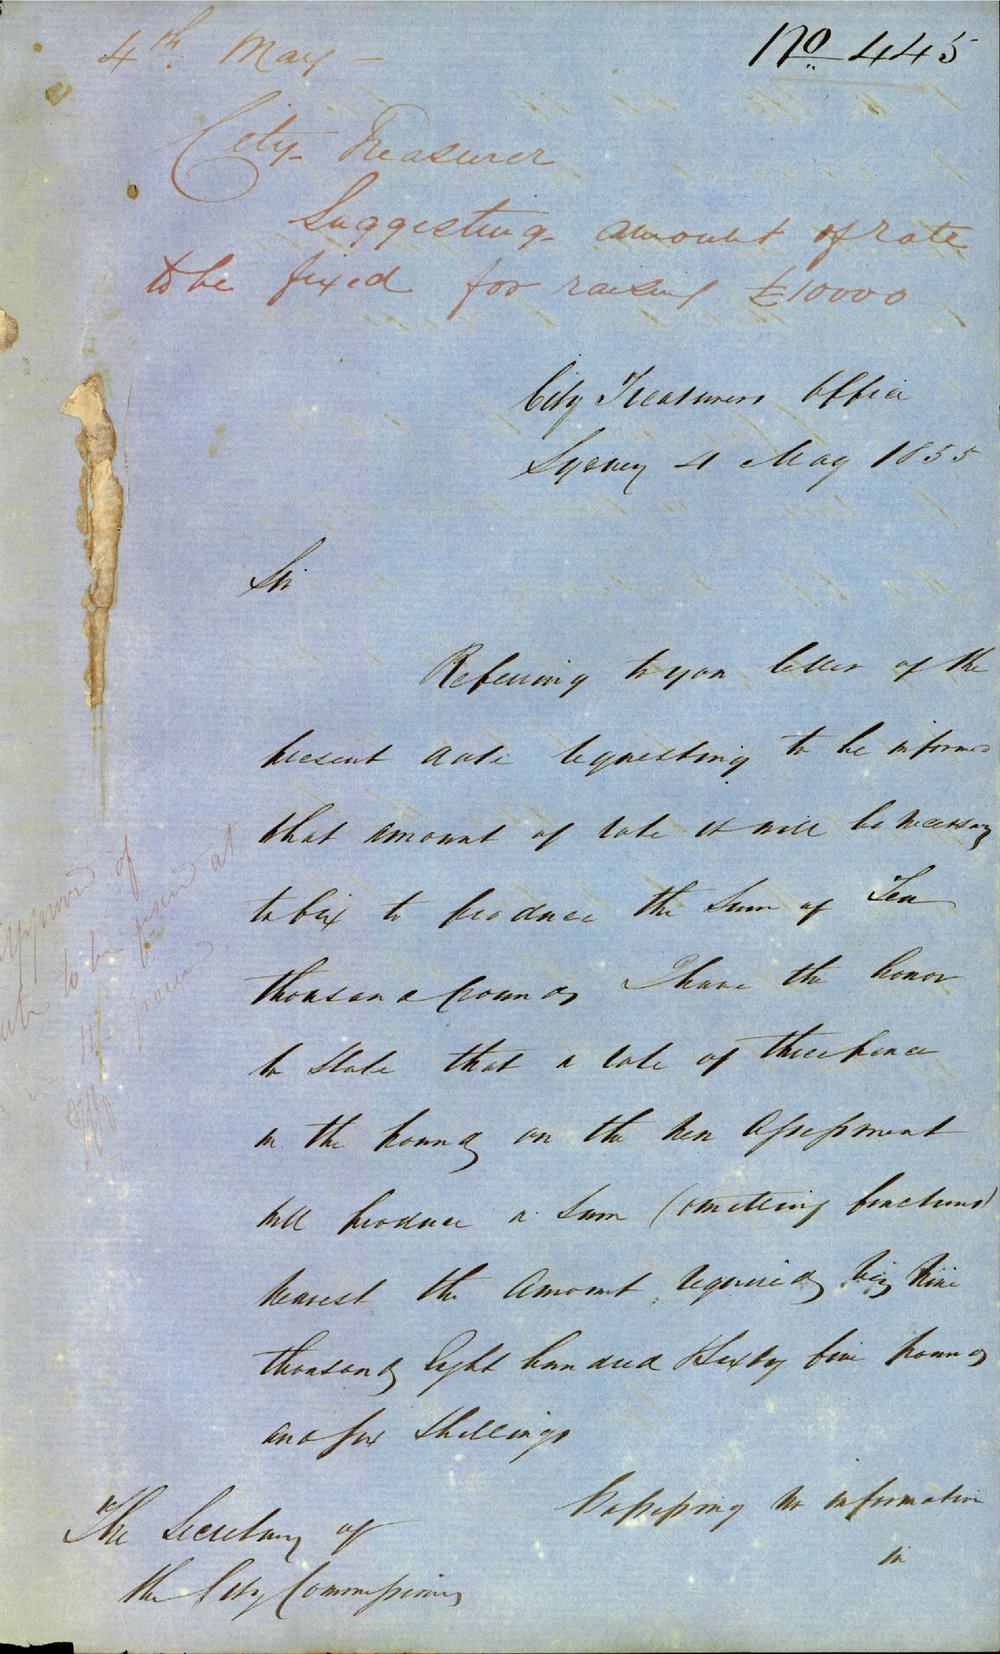 4th May -
No 445
City Treasurer
Suggesting amount of rate
to be fixed for raising £10000
City Treasurers Office
Sydney 4 May 1855
Sir
Referring to your letter of the
present date requesting to be informed
what amount of rate it will be necessary
to fix to produce the Sum of Ten
thousand pounds I have the honor
to state that a rate of threepence
in the pound on the new Assessment
will produce a Sum (omitting fractions)
nearest the Amount required viz Nine
thousand Eight hundred & Sixty five pounds
and six Shillings
Possessing no information
in
The Secretary of
the City Commissioners
Approved of
rate to be fixed at
pound.